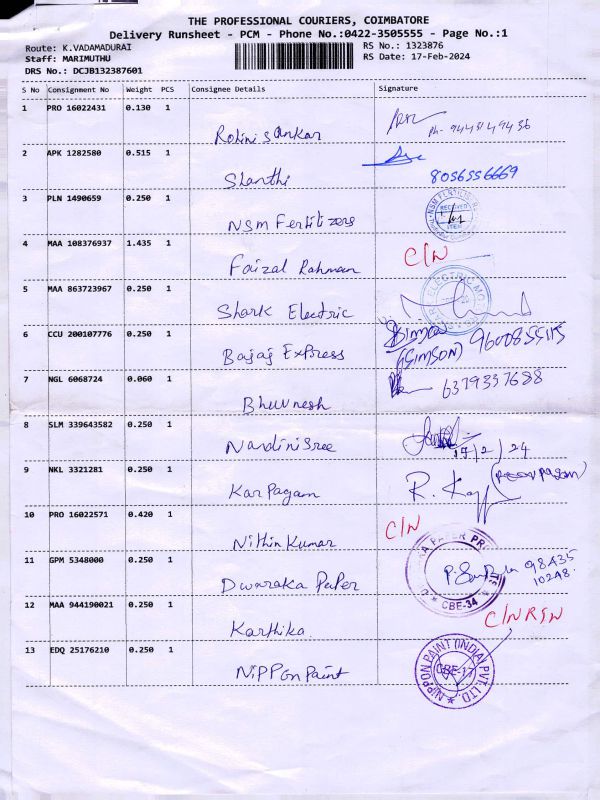 THE PROFESSIONAL COURIERS, COIMBATORE
Delivery Runsheet - PCM - Phone No.:0422-3505555 - Page No.:1
Route: K.VADAMADURAI
RS No.: 1323876
Staff: MARIMUTHU
RS Date: 17-Feb-2024
DRS No.: DCJB132387601
S No Consignment No Weight PCS Consignee Details Signature
1 PRO 16022431 0.130 1
Rohini Sankar
2 APK 1282580 0.515 1
Shanthi 8056556669
3 PLN 1490659 0.250 1
NSM Fertilizers RECEIVED
4 MAA 108376937 1.435 1
Faizal Rahman C/N
5 MAA 863723967 0.250 1
Shark Electric
6 CCU 200107776 0.250 1
Bajaj Express (SIMSON)
7 NGL 6068724 0.060 1
Bhuvnesh 6379337688
8 SLM 339643582 0.250 1
Nandini Sree 17/2/24
9 NKL 3321281 0.250 1
Karpagam
10 PRO 16022571 0.420 1
Nithin Kumar C/N
11 GPM 5348000 0.250 1
Dwaraka Paper 98435
10248
CBE-34
12 MAA 944190021 0.250 1
Karthika. C/N RSN
13 EDQ 25176210 0.250 1
Nippon Paint NIPPON PAINT (INDIA) PVT. LTD.
CBE-17